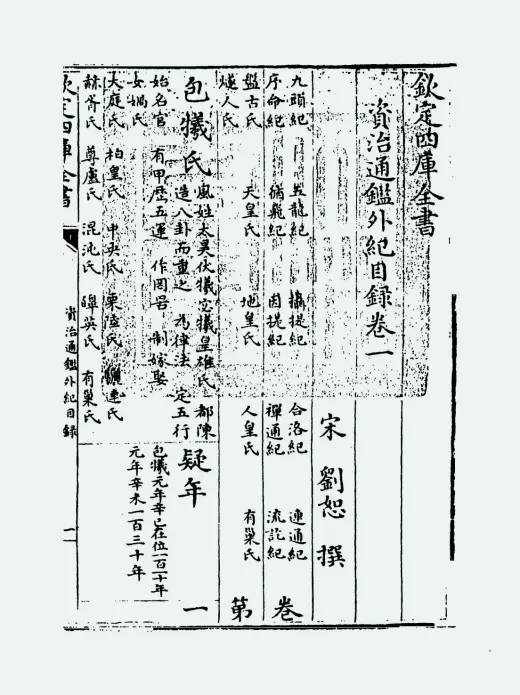 欽定四庫全書
資治通鑑外紀目錄卷一
宋 劉恕 撰
九頭紀 五龍紀 攝提紀 合洛紀 連通紀
序命紀 循蜚紀 因提紀 禪通紀 流訖紀
盤古氏 天皇氏 地皇氏 人皇氏 有巢氏
燧人氏
卷
第
一
包犧氏 風姓太昊伏犧宓犧皇雄氏 都陳
造八卦而重之 為律法 定五行
始名官 有甲歷五運 作罔罟 制嫁娶
疑年
包犧元年辛巳在位一百一十年
元年辛未一百三十年
女媧氏
大庭氏 柏皇氏 中央氏 栗陸氏 驪連氏
赫胥氏 尊盧氏 混沌氏 皞英氏 有巢氏
欽定四庫全書
資治通鑑外紀目錄
一